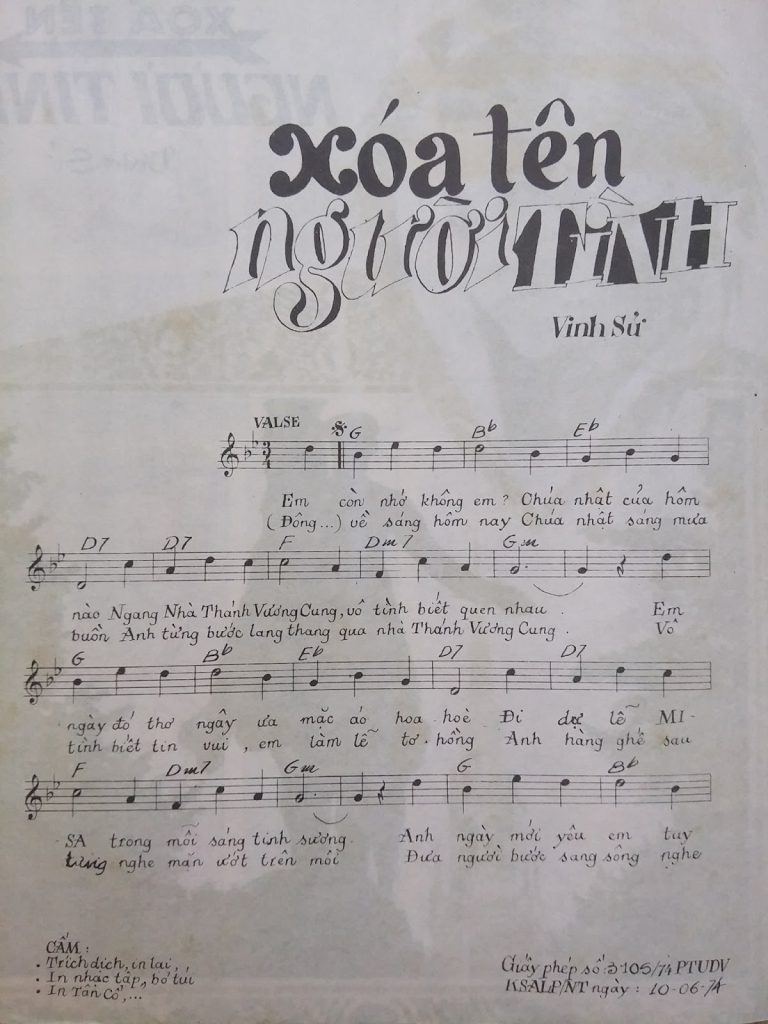 Xóa tên
người TÌNH
Vinh Sử
VALSE
G Bb Eb
Em còn nhớ không em? Chúa nhật của hôm
(Đông...) về sáng hôm nay Chúa nhật sáng mưa
D7 D7 F Dm7 Gm
nào Ngang Nhà Thánh Vương Cung, vô tình biết quen nhau. Em
buồn Anh từng bước lang thang qua nhà Thánh Vương Cung. Vô
G Bb Eb D7 D7
ngày đó thơ ngây ưa mặc áo hoa hoè Đi dự lễ MI-
tình biết tin vui, em làm lễ tơ hồng Anh hàng ghế sau
F Dm7 Gm G Bb
SA trong mỗi sáng tinh sương. Anh ngày mới yêu em tuy
từng nghe mặn ướt trên môi Đưa người bước sang sông nghe
CẤM:
• Trích dịch, in lại,
• In nhạc tập, bỏ túi
• In Tân Cổ,...
Giấy phép số 3105/74 PTUDV
KSALP/NT ngày: 10-06-74